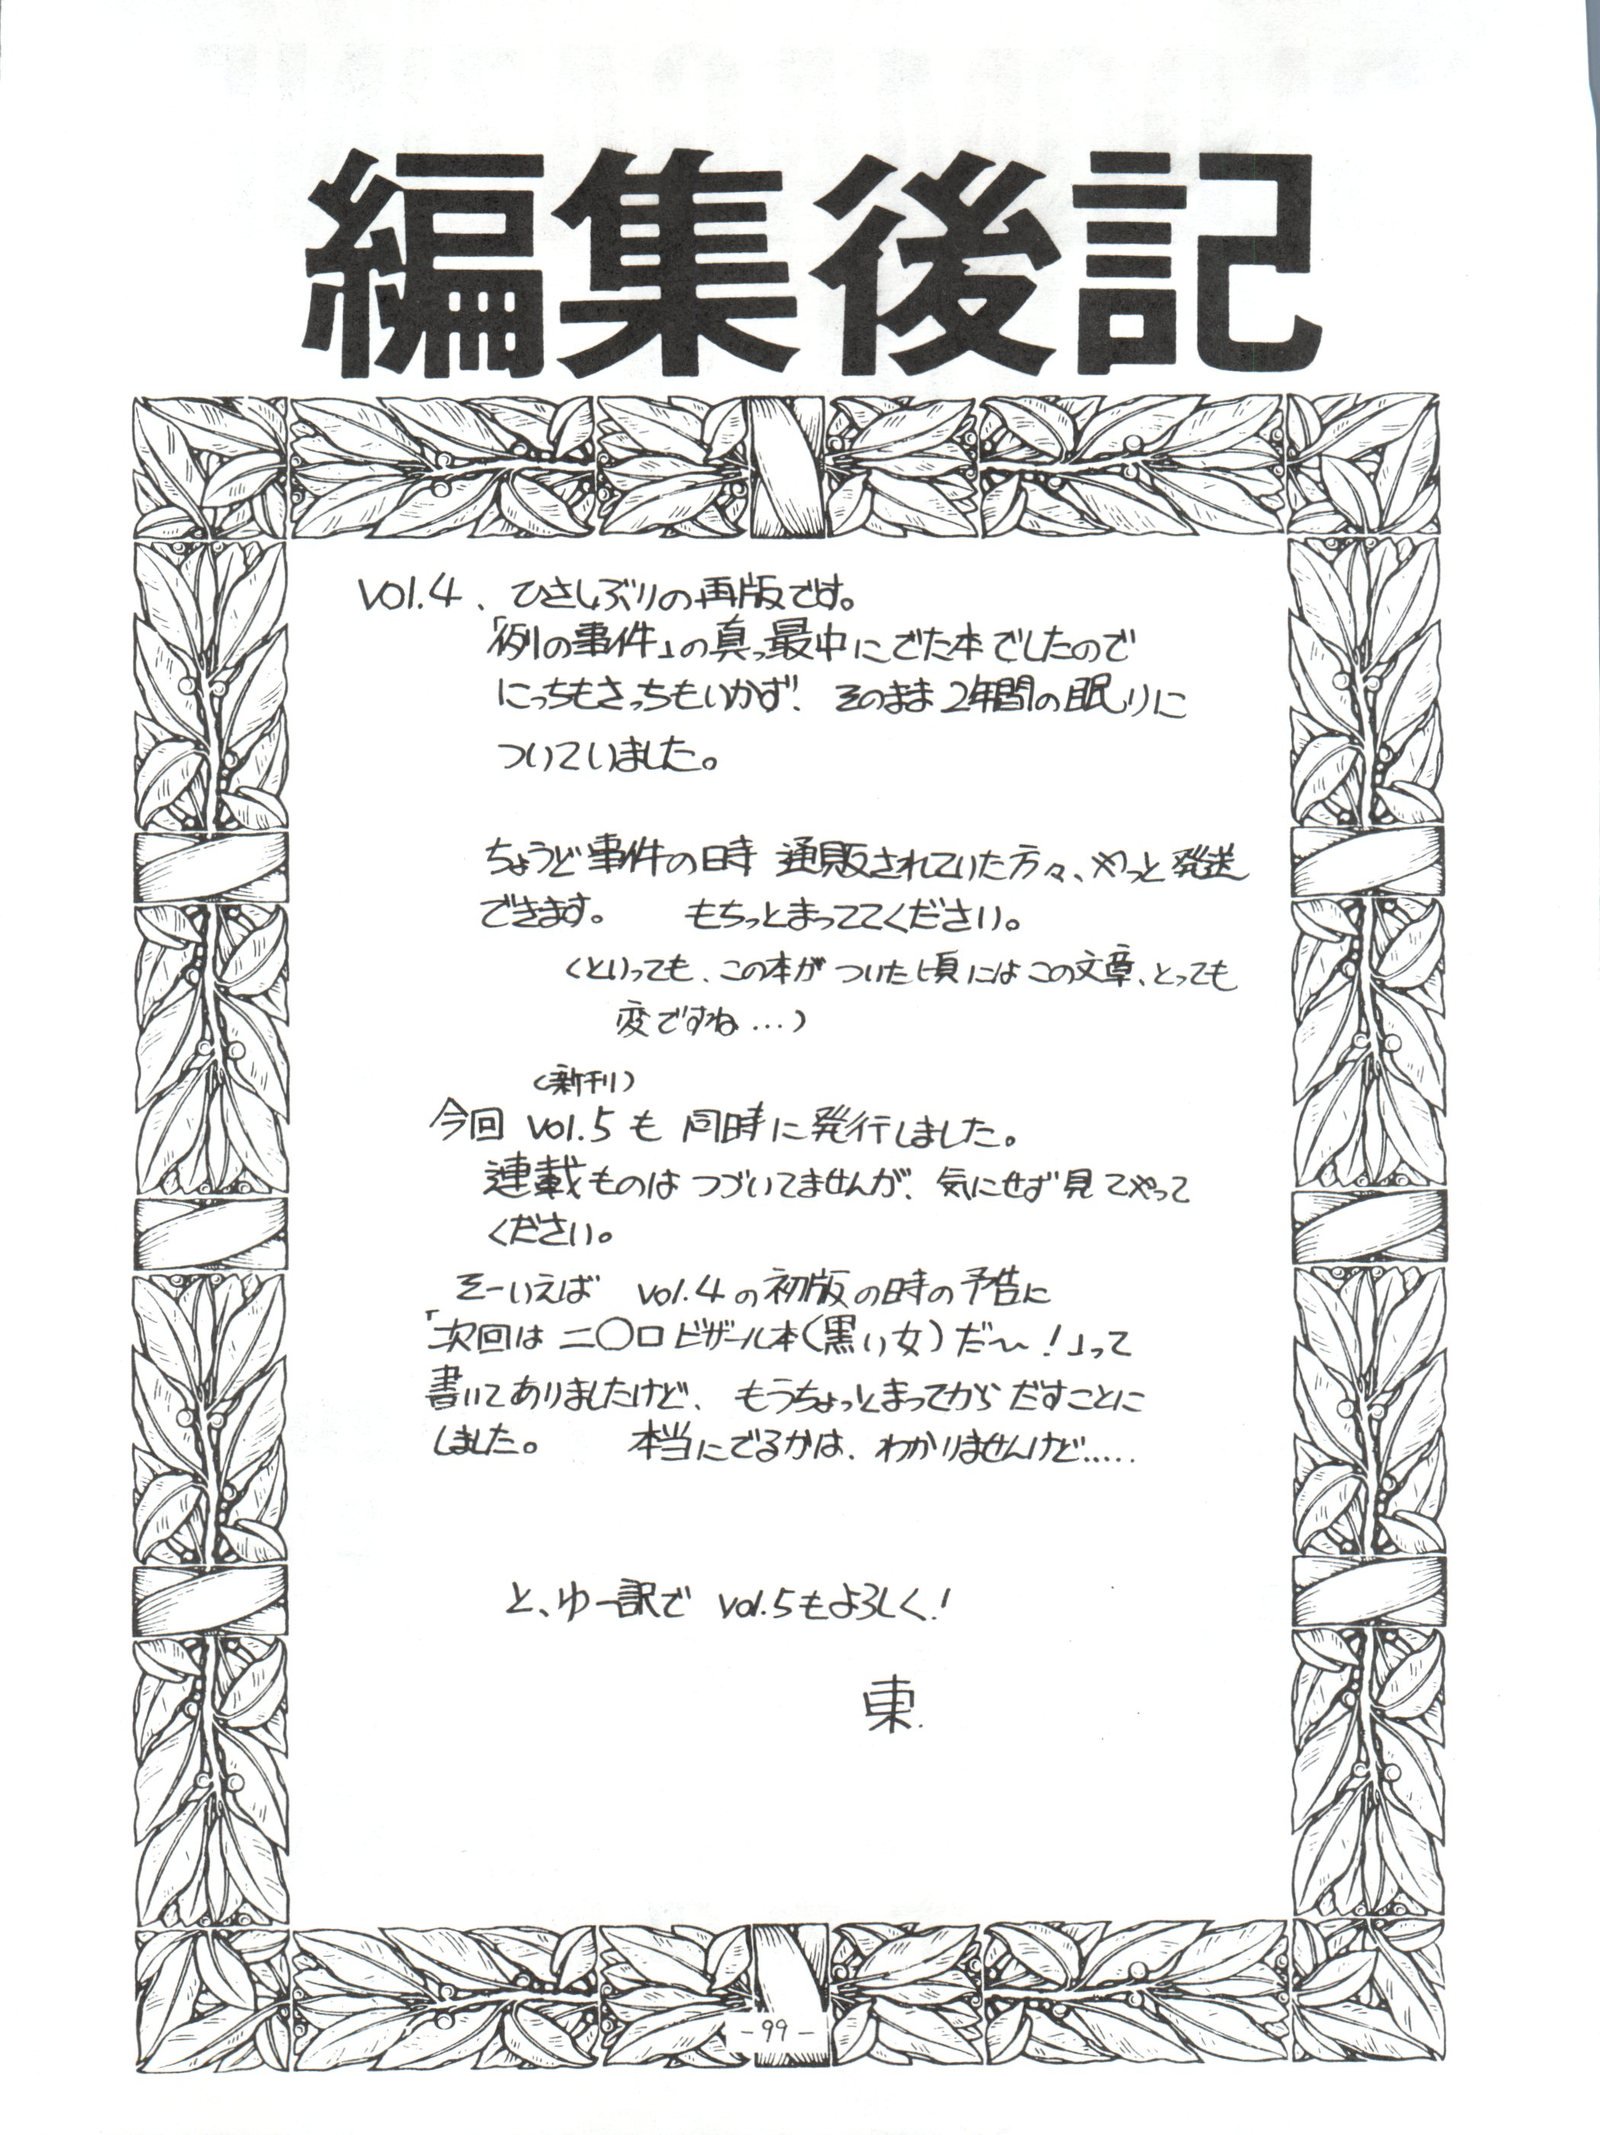 編集後記
vol.4、ひさしぶりの再版です。
「例の事件」の真っ最中にでた本でしたので
にっちもさっちもいかず、そのまま2年間の眠りに
ついていました。
ちょうど事件の時 通販されていた方々、やっと発送
できます。 もちっとまっててください。
(といっても、この本がついた頃にはこの文章、とっても
変ですね…)
(新刊)
今回 vol.5も 同時に発行しました。
連載ものはつづいてませんが、気にせず見てやって
ください。
そーいえば vol.4の初版の時の予告に
「次回は 二〇ロ ビザール本(黒い女)だ〜!」って
書いてありましたけど、もうちょっとまってからだすことに
しました。 本当にでるかは、わかりませんけど.....
と、ゆー訳で vol.5もよろしく!
東.
- 99 -